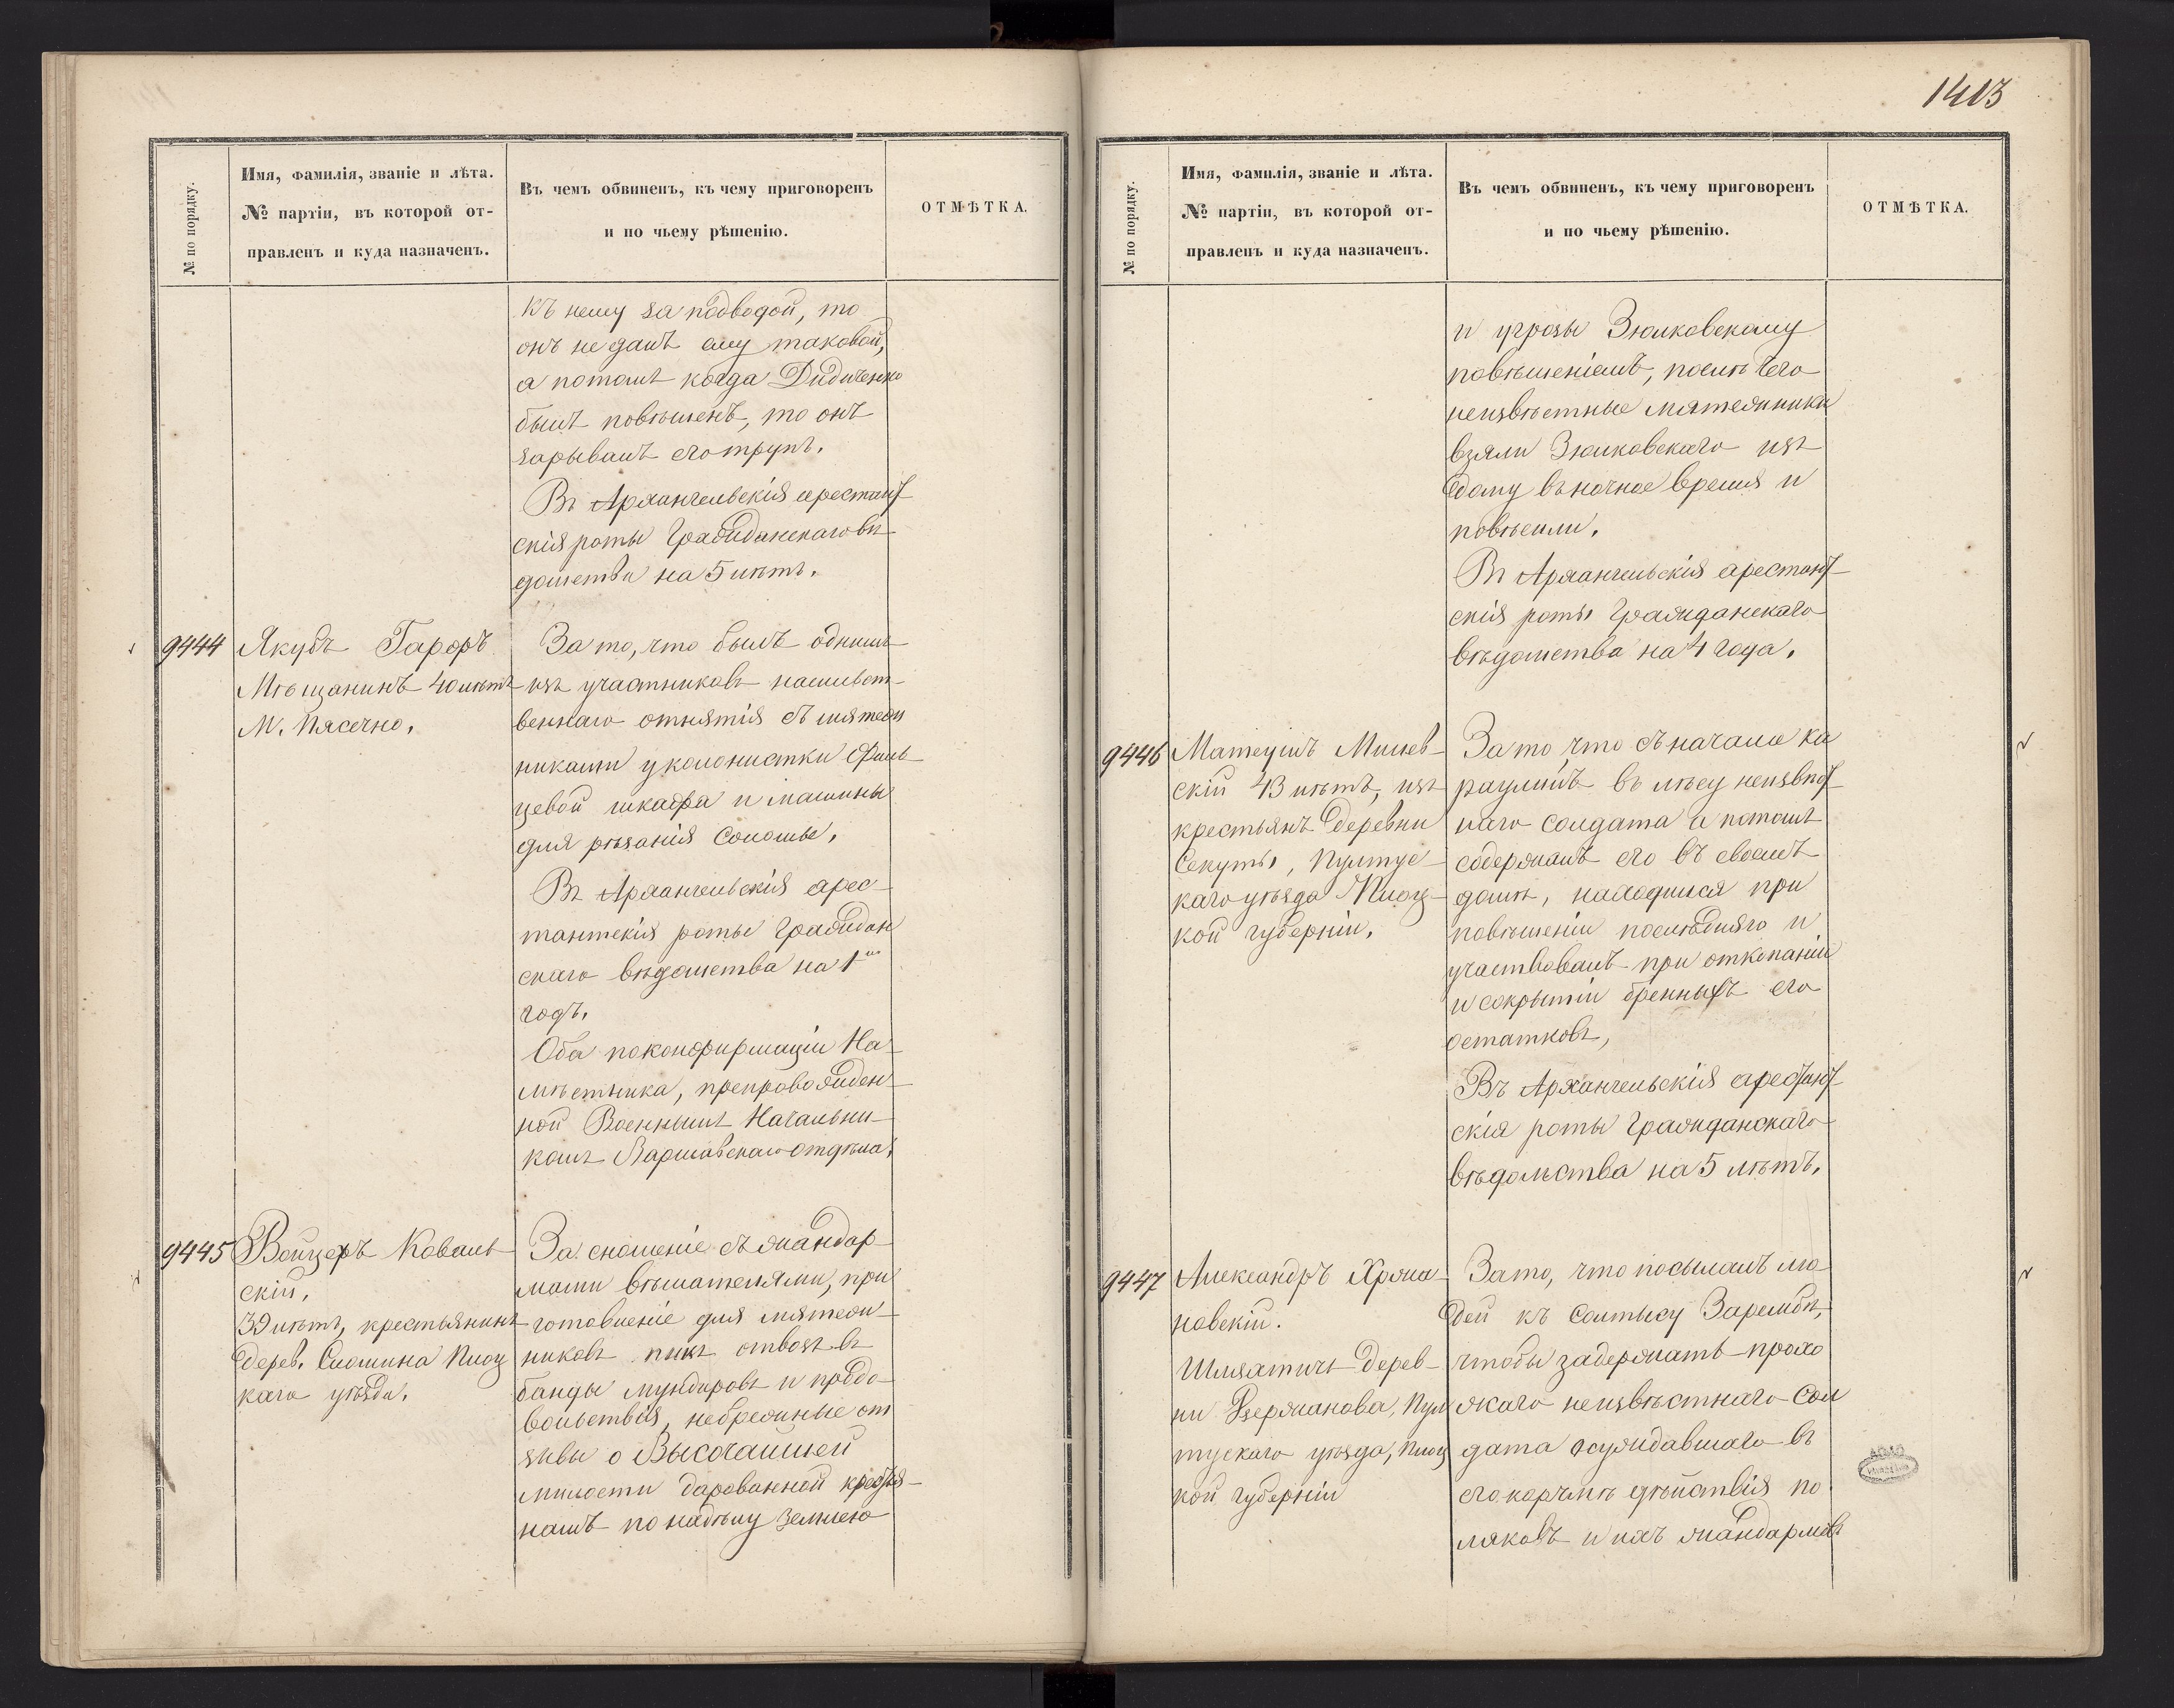 № по порядку.
Имя, фамилія, званіе и лѣта.
№ партіи, въ которой от-
правленъ и куда назначенъ.
Въ чемъ обвиненъ, къ чему приговоренъ
и по чьему рѣшенію.
ОТМѢТКА.
къ нему за подводой, то
онъ не далъ ему таковой,
а потомъ когда Дидиченко
былъ повѣшенъ, то онъ
зарывалъ его трупъ.
Въ Архангельскія арестант
скія роты Гражданскаго вѣ
домства на 5 лѣтъ.
9444
Якубъ Гарфъ
Мѣщанинъ 40 лѣтъ
М. Пясечно.
За то, что былъ однимъ
изъ участниковъ насильст
веннаго отнятія съ мятеж
никами у колонистки
цевой шкафа и машины
для рѣзанія соломы.
Въ Архангельскія арес-
тантскія роты Граждан
скаго вѣдомства на 1ⁿ
годъ.
Оба по конфирмаціи На-
мѣстника, препровожден-
ной Военнымъ Начальни-
комъ Варшавскаго отдѣла.
9445
Войцехъ Коваль-
скій,
39 лѣтъ, крестьянинъ
дерев. Сломина Плоц
каго уѣзда.
За сношеніе съ жандар-
мами вѣшателями, при
готовленіе для мятеж-
никовъ пикъ отвозъ въ
банды мундировъ и продо
вольствія, небрежные от
зывы о Высочайшей
милости дарованной крестья-
намъ по надѣлу землею
1413
№ по порядку.
Имя, фамилія, званіе и лѣта.
№ партіи, въ которой от-
правленъ и куда назначенъ.
Въ чемъ обвиненъ, къ чему приговоренъ
и по чьему рѣшенію.
ОТМѢТКА.
и угрозы Зюлковскому
повѣшеніемъ, послѣ чего
неизвѣстные мятежники
взяли Зюлковскаго изъ
дому въ ночное время и
повѣсили.
Въ Архангельскія арестант
скія роты Гражданскаго
вѣдомства на 4 года.
9446
Матеушъ Милев-
скій 43 лѣтъ, изъ
крестьянъ деревни
Секуты, Пултус-
каго уѣзда Плоц-
кой губерніи.
За то, что съ начала ка
раулилъ въ лѣсу неизвѣст
наго солдата а потомъ
содержалъ его въ своемъ
домѣ, находился при
повѣшеніи послѣдняго и
участвовалъ при откопаніи
и сокрытіи бренныхъ его
остатковъ,
Въ Архангельскія арестант
скія роты гражданскаго
вѣдомства на 5 лѣтъ.
9447
Александръ Хржа-
новскій.
Шляхтичъ дерев-
ни Дзержанова, Пул
тускаго уѣзда, Плоц
кой губерніи
За то, что посылалъ лю
дей къ солтысу Зарембѣ,
чтобы задержать прохо
жаго неизвѣстнаго сол
дата осуждавшаго въ
его корчмѣ дѣйствія по
ляковъ и ихъ жандармовъ